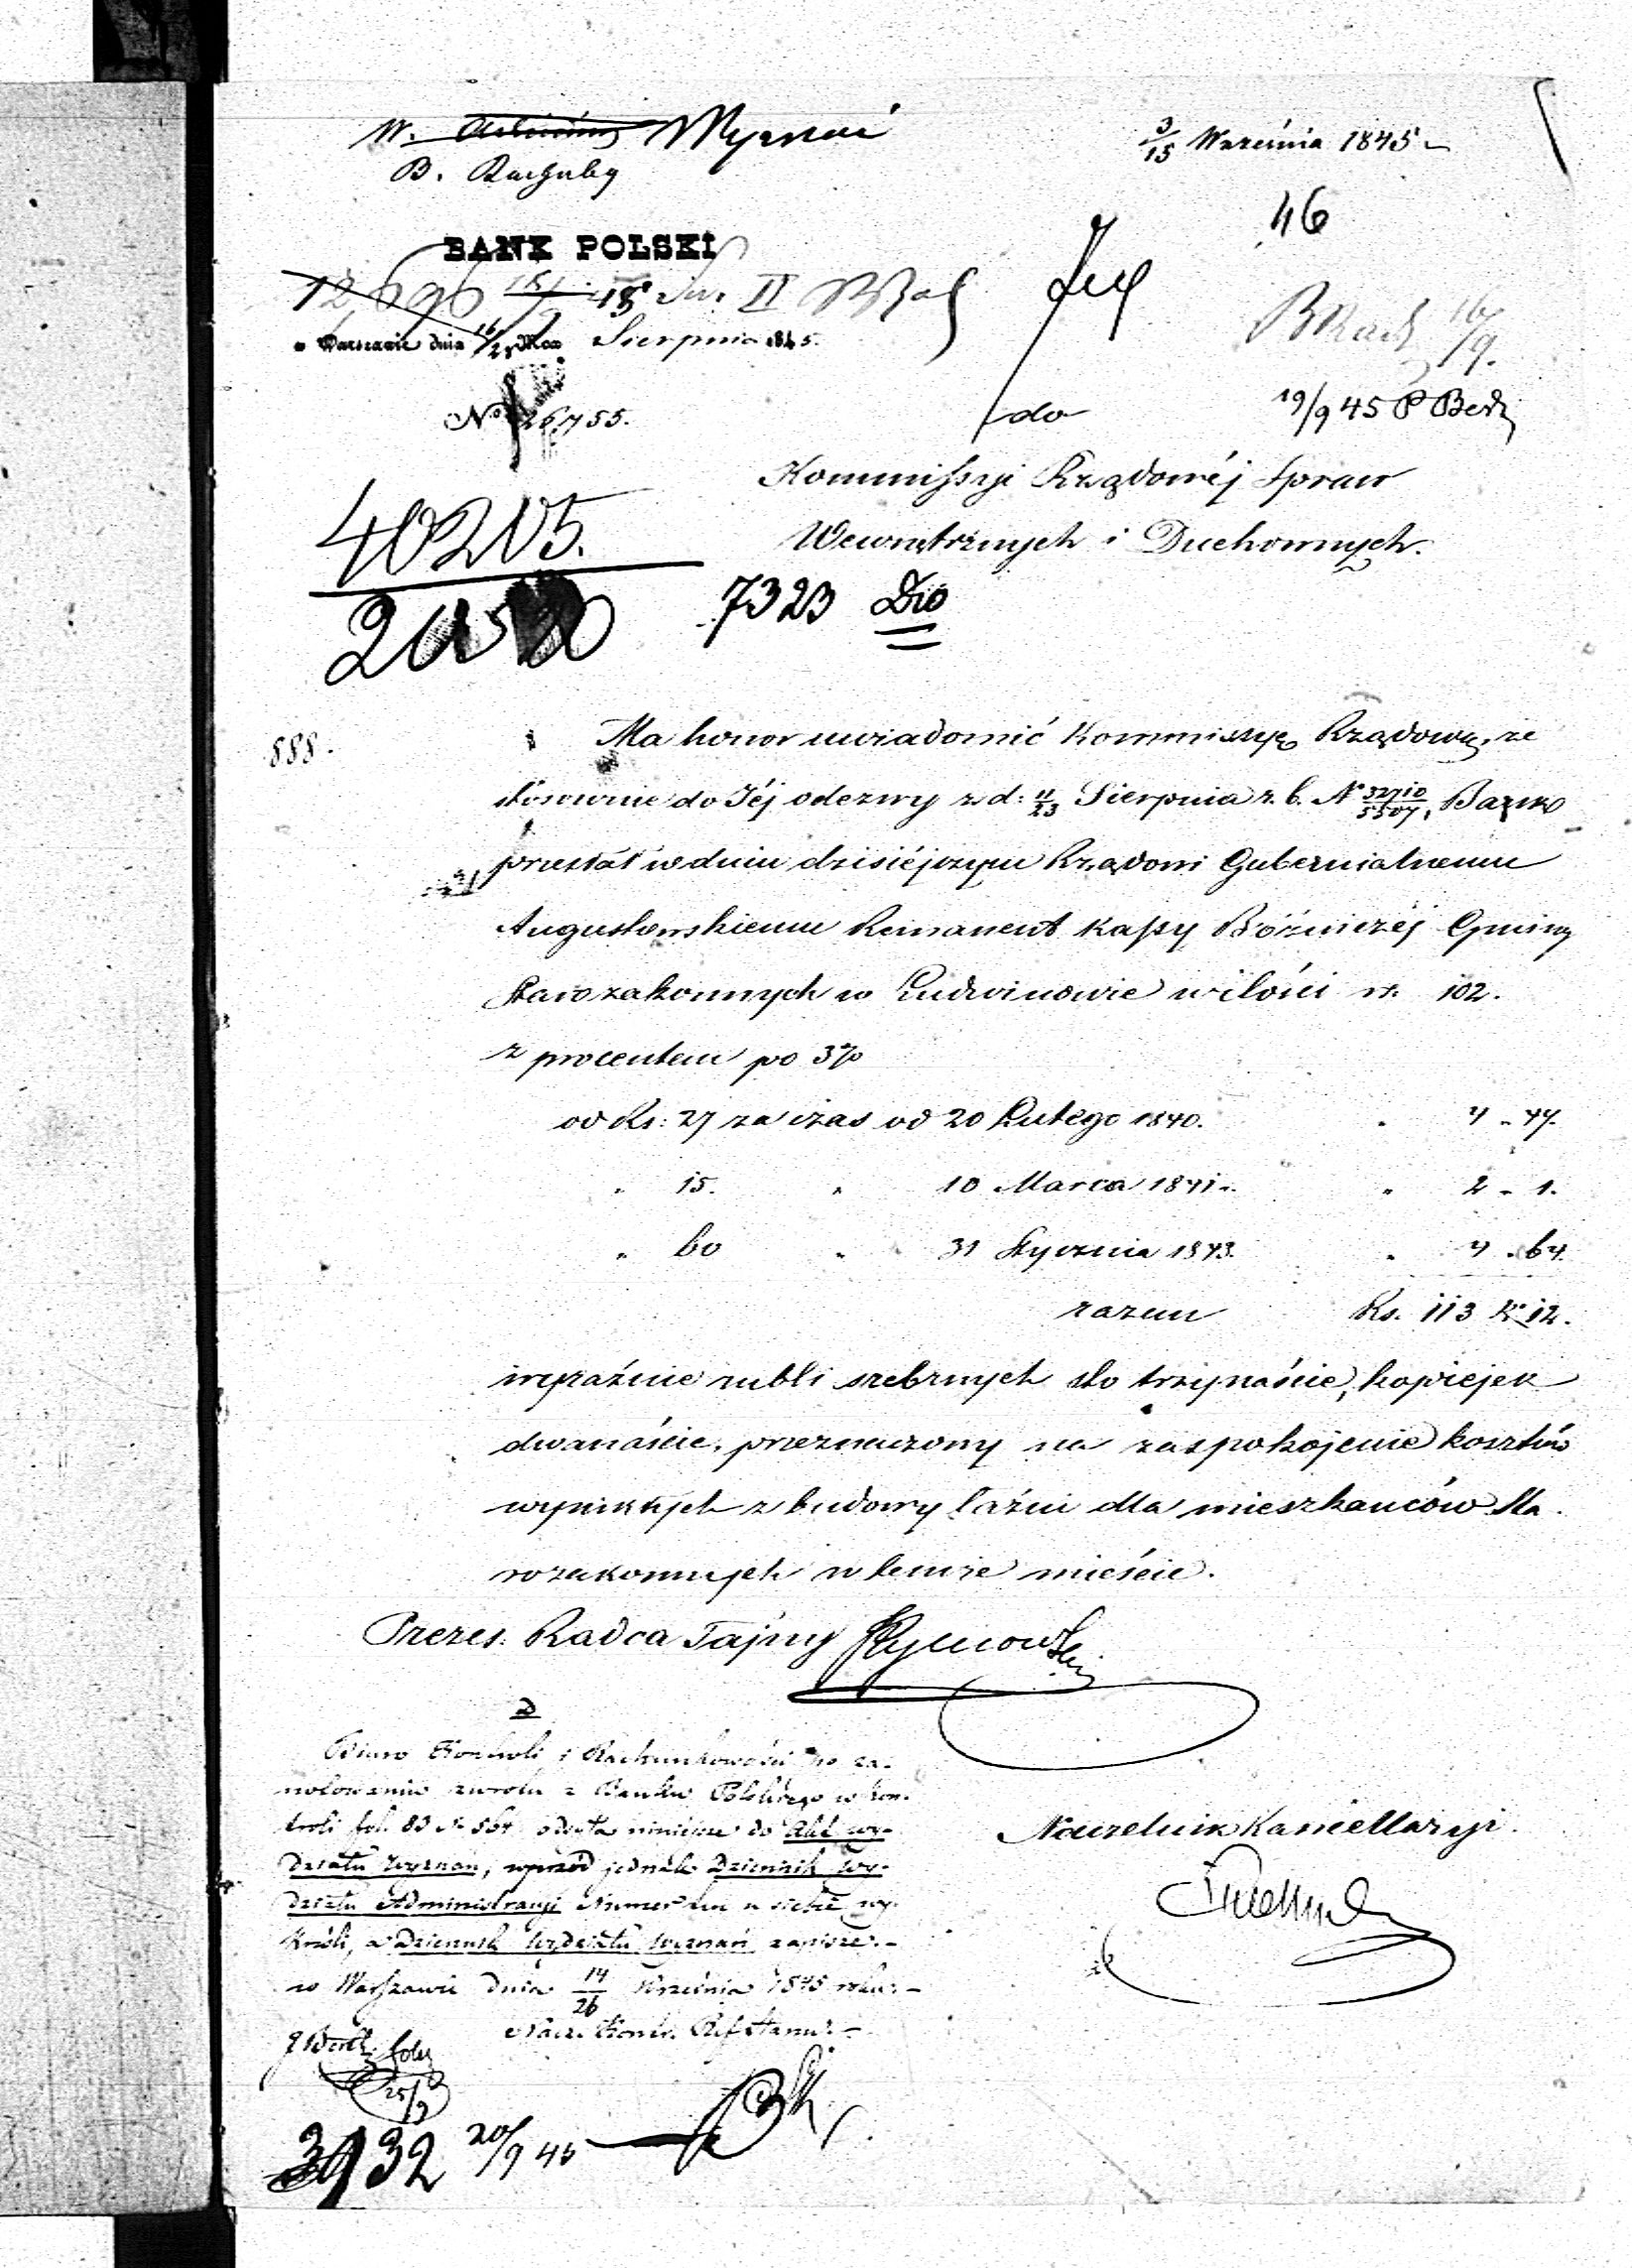 W. Wyznań
3/15 Września 1845
B. Rachuby
46
BANK POLSKI
12696 II
w Warszawie dnia 16/28 Sierpnia 1845.
BRach 16/9.
No 26755.
do
19/9 45 P
Kommissyi Rządowéj Spraw
40205.
Wewnętrznych i Duchownych.
7323
888.
Ma honor uwiadomić Kommissyę Rządową, że
stosownie do Jéj odezwy z d: 11/23 Sierpnia r. b. No 32710/5507, Bank
przesłał w dniu dzisiéjszym Rządowi Gubernialnemu
Augustowskiemu Remanent Kassy Bóżniczéj Gminy
Starozakonnych w Ludwinowie w ilości rs. 102.
z procentem po 3%
od Rs: 27 za czas od 20 Lutego 1840. " 4 " 47.
" 15. " 10 Marca 1841. " 2 " 1.
" 60 " 31 Stycznia 1843. " 4 " 64.
razem Rs. 113 k. 12.
wyraźnie rubli srebrnych sto trzynaście, kopiejek
dwanaście, przeznaczony na zaspokojenie kosztów
wynikłych z budowy łaźni dla mieszkańców Sta-
rozakonnych w temże mieście.
Prezes: Radca Tajny Tymowski
D
Biuro Kontroli i Rachunkowości po za-
notowaniu zwrotu z Banku Polskiego w kon-
troli fol. 83 N 564 odda niniejsze do Akt Wy-
działu Wyznań, wprzód jednak Dziennik Wy-
działu Administracyi Numer ten u siebie wy-
kréśli, a Dziennik Wydziału Wyznań zapisze.-
w Warszawie dnia 14/26 Września 1845 roku.-
Naczelnik Kancellaryi.
Nacz. Kontr.
25/9
3932 20/9 45